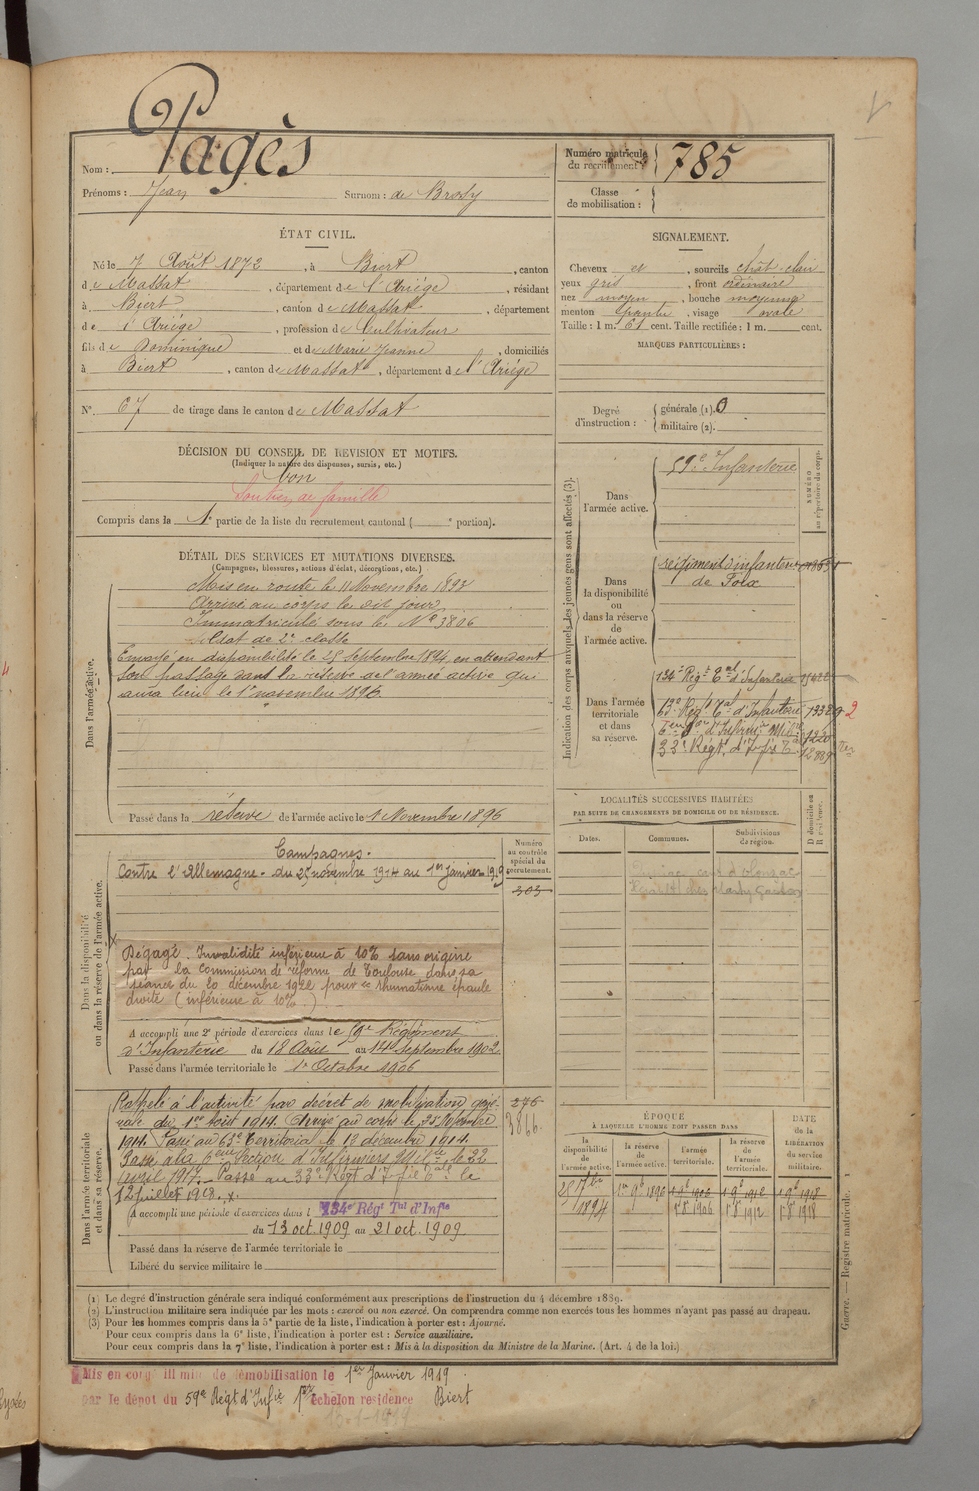 Nom : Pagès
Prénoms : Jean Surnom : de Brosy
Numéro matricule du recrutement : 785
Classe de mobilisation :
ÉTAT CIVIL.
Né le 7 Août 1872, à Biert, canton
de Massat, département de l'Ariége, résidant
à Biert, canton de Massat, département
de l'Ariége, profession de Cultivateur
fils de Dominique et de Marie Jeanne, domiciliés
à Biert, canton de Massat, département de l'Ariége
N° 67 de tirage dans le canton de Massat
SIGNALEMENT.
Cheveux et, sourcils chât-clair
yeux gris, front ordinaire
nez moyen, bouche moyenne
menton pointu, visage ovale
Taille : 1 m. 61 cent. Taille rectifiée : 1 m. cent.
MARQUES PARTICULIÈRES :
Degré d'instruction : générale (1). 0
militaire (2).
DÉCISION DU CONSEIL DE REVISION ET MOTIFS.
(Indiquer la nature des dispenses, sursis, etc.)
bon
Soutien de famille
Compris dans la 1e partie de la liste du recrutement cantonal ( e portion).
DÉTAIL DES SERVICES ET MUTATIONS DIVERSES.
(Campagnes, blessures, actions d'éclat, décorations, etc.)
Dans l'armée active.
Mis en route le 11 Novembre 1893
Arrivé au corps le dit jour
Immatriculé sous le N° 3806
Sldat de 2e classe
Envoyé en disponibilité le 25 Septembre 1894 en attendant
son passage dans la réserve de l'armée active qui
aura lieu le 1er novembre 1896.
Passé dans la réserve de l'armée active le 1 Novembre 1896
Indication des corps auxquels les jeunes gens sont affectés (3).
NUMÉRO au répertoire du corps.
Dans l'armée active.
59e d'Infanterie
Dans la disponibilité ou dans la réserve de l'armée active.
régiment d'infanterie
de Foix
Dans l'armée territoriale et dans sa réserve.
134e Régt Tal d'Infanterie
Régt Tal d'Infanterie
33e Régt d'Infie Tle
LOCALITÉS SUCCESSIVES HABITÉES
PAR SUITE DE CHANGEMENTS DE DOMICILE OU DE RÉSIDENCE.
Dates.
Communes.
Subdivisions de région.
D domicile ou R résidence.
Dans la disponibilité ou dans la réserve de l'armée active.
Numéro au contrôle spécial du recrutement.
303
Campagnes.
Contre l'Allemagne - du 25 novembre 1914 au 1er janvier 1919
Dégagé. Invalidité inférieure à 10% sans origine
par la commission de réforme de Toulouse dans sa
séance du 20 décembre 1922 pour : rhumatisme épaule
droite (inférieure à 10%)
A accompli une 2e période d'exercices dans le 59e Régiment
d'Infanterie du 18 Août au 14 septembre 1902
Passé dans l'armée territoriale le 1er Octobre 1906
Dans l'armée territoriale et dans sa réserve.
276
3866.
Rappelé à l'activité par décret de mobilisation géné-
rale du 1er Août 1914. Arrivé au corps le 25 Novembre
1914. Passé au 63e Territorial le 12 décembre 1914.
Passé à la 6ème Section d'Infirmiers Milres le 22
Avril 1917. - Passé au 33e Régt d'Infie Tale le
12 juillet 1918.
A accompli une période d'exercices dans l 134e Régt Tal d'Infie
du 13 oct. 1909 au 21 oct. 1909
Passé dans la réserve de l'armée territoriale le
Libéré du service militaire le
ÉPOQUE
À LAQUELLE L'HOMME DOIT PASSER DANS
la disponibilité de l'armée active.
la réserve de l'armée active.
l'armée territoriale.
la réserve de l'armée territoriale.
DATE de la LIBÉRATION du service militaire.
25 7bre 1894
1er 9b 1896
1er 9b 1906
1er 9b 1912
1er 9b 1918
1er 8b 1906
1er 8b 1912
1er 8b 1918
(1) Le degré d'instruction générale sera indiqué conformément aux prescriptions de l'instruction du 4 décembre 1889.
(2) L'instruction militaire sera indiquée par les mots : exercé ou non exercé. On comprendra comme non exercés tous les hommes n'ayant pas passé au drapeau.
(3) Pour les hommes compris dans la 5e partie de la liste, l'indication à porter est : Ajourné.
Pour ceux compris dans la 6e liste, l'indication à porter est : Service auxiliaire.
Pour ceux compris dans la 7e liste, l'indication à porter est : Mis à la disposition du Ministre de la Marine. (Art. 4 de la loi.)
Guerre. — Registre matricule. 1
Mis en congé illimité de démobilisation le 1er Janvier 1919.
par le dépot du 59e Régt d'Infie 1er échelon residence Biert